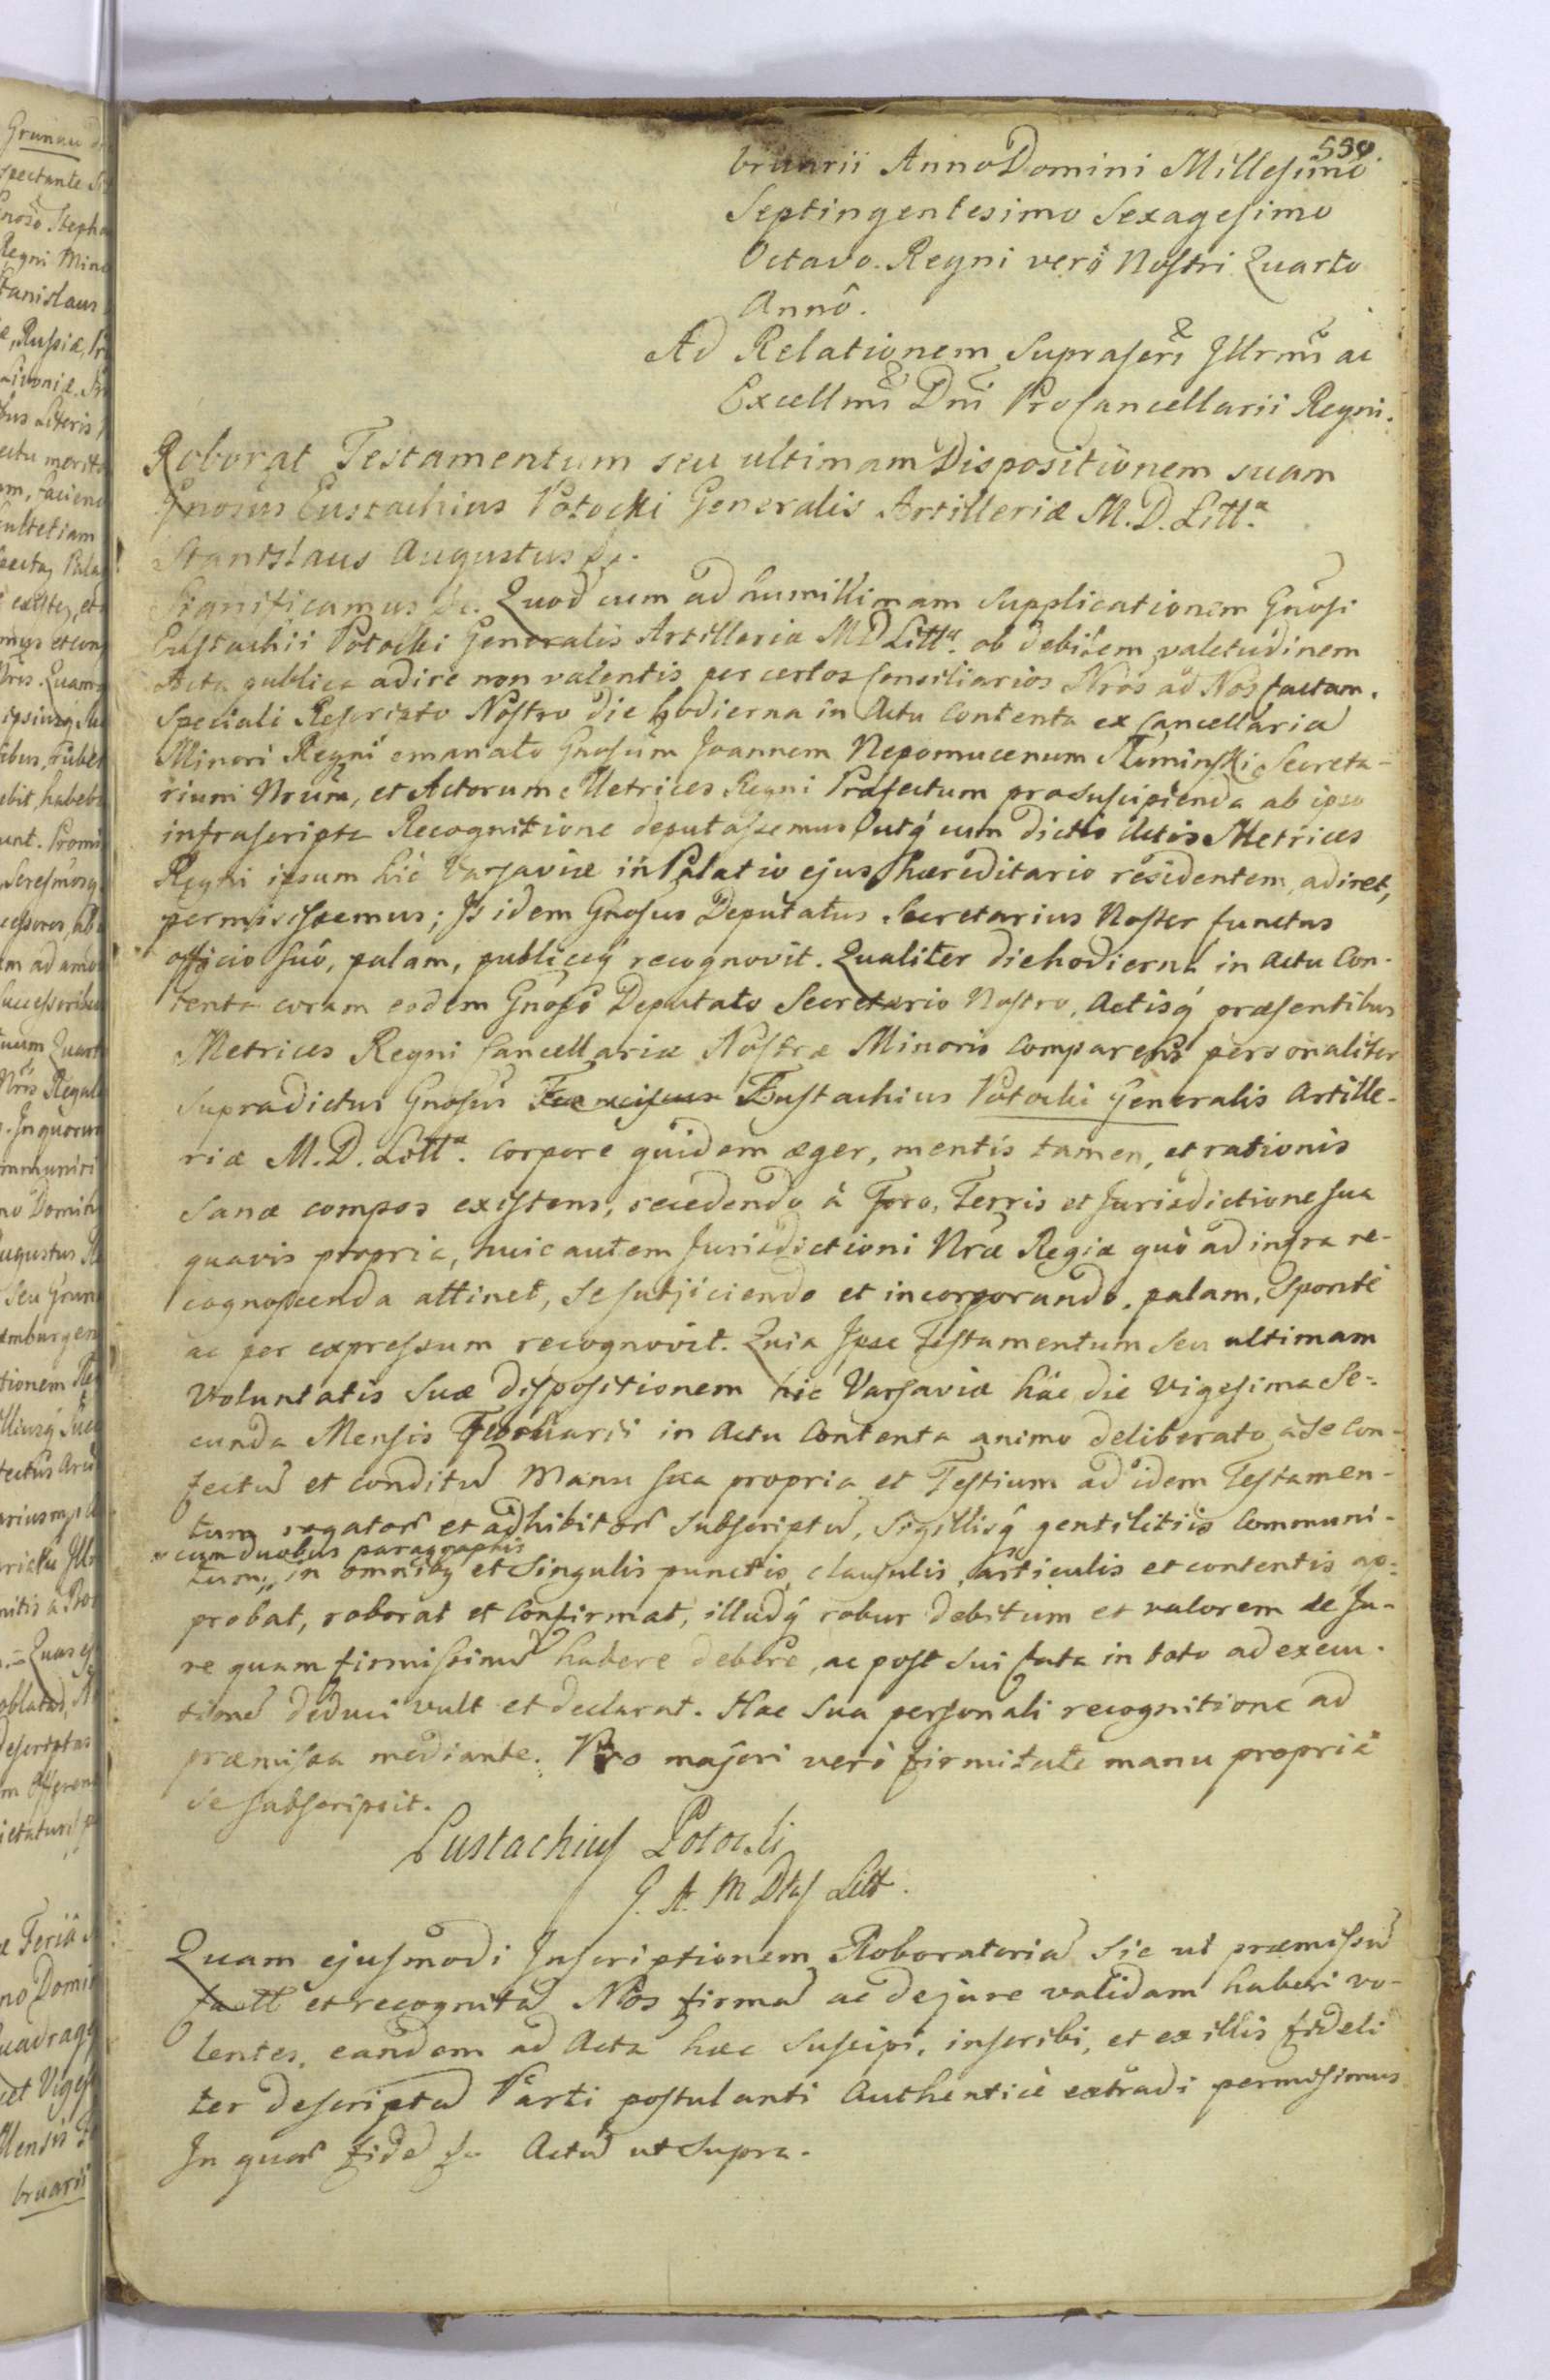 559.
bruarii Anno Domini Millesimo
Septingentesimo Sexagesimo
Octavo. Regni verò Nostri Quarto
Annô.
Ad Relationem Suprascri Illrmi ac
Excellmi Dni ProCancellarii Regni.
Roborat Testamentum seu ultimam Dispositionem suam
Gnosus Eustachius Potocki Generalis Artilleriæ M. D. Litt.ª
Stanislaus Augustus &c.
Significamus &c. Quod cum ad humillimam Supplicationem Gnosi
Eustachii Potocki Generalis Artilleriæ M D Littª. ob debilem valetudinem
Acta publica adire non valentis per certos Consiliarios Nros ad Nos factam.
Speciali Rescripto Nostro die hodierna in Actu Contenta ex Cancellaria
Minori Regni emanato Gnosum Joannem Nepomucenum Secreta-
rium Nrum, et Actorum Metrices Regni Præfectum pro suscipienda ab ipso
infrascripta Recognitione deputassemus Utq́ cum dictis Actis Metrices
Regni ipsum hic Varsaviæ in Palatio ejus hæreditario residentem, adiret,
permisissemus; Is idem Gnosus Deputatus Secretarius Noster functus
officio suô, palam, publiceq́ recognovit. Qualiter die hodierna in Actu Con-
tenta coram eodem Gnoso Deputato Secretario Nostro, Actisq́ præsentibus
Metrices Regni Cancellariæ Nostræ Minoris Comparens personaliter
Supradictus Gnosus Franciscus Eustachius Potocki Generalis Artille-
riæ M. D. Littª. Corpore quidem æger, mentis tamen, et rationis
Sanæ compos existens, recedendo à Foro, Terris et Jurisdictione sua
quavis propria, huic autem Jurisdictioni Nræ Regiæ quò ad infra re-
cognoscenda attinet, se subjiciendo et incorporando, palam, Spontè
ac per expressum recognovit. Quia Ipse Testamentum seu ultimam
Voluntatis Suæ dispositionem hic Varsaviæ hâc die Vigesima Se-
cunda Mensis Februarii in Actu Contenta animo deliberato a se Con-
fectu et conditu Manu sua propria et Testium ad idem Testamen-
tum rogator et adhibitor subscriptu, Sigillisq́ gentilitiis Communi-
cum duobus paragraphis
tum, in omnibq et Singulis punctis, clausulis, articulis et contentis ap-
probat, roborat et Confirmat, illudq́ robur debitum et valorem de Ju-
re quam firmissimu habere debere, ac post sui fata in toto ad execu-
tione deduci vult et declarat. Hac Sua personali recognitione ad
præmissa mediante. Pro majori verò firmitate manu propriâ
se subscripsit.
Eustachius Potocki
G. A. M Dus Litt.
Quam ejusmodi Inscriptionem Roboratoria Sic ut præmissu
et recognita Nos firma ac de jure validam haberi vo-
lentes, eandem ad Acta hæc Suscipi, inscribi, et ex illis fideli
ter descripta Parti postulanti Authenticè extradi permisimus
In quor fide &c Actu ut Supra.